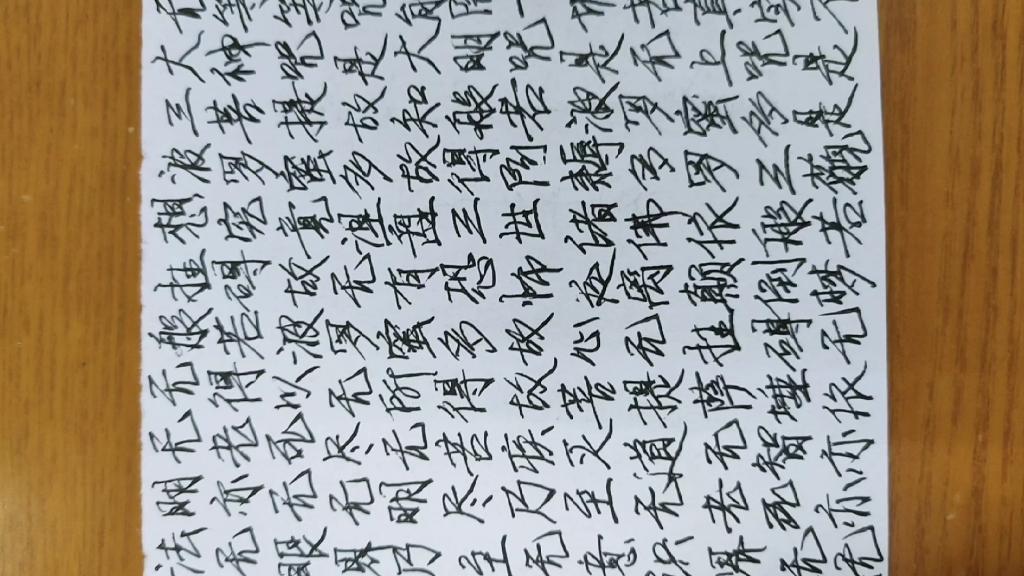 法无眼界乃至无意识界无无
明亦无无明尽乃至无老死亦
无老死尽无苦集灭道无智亦
无得以无所得故菩提萨埵依
般若波罗蜜多故心无挂碍无
挂碍故无有恐怖远离颠倒梦
想究竟涅盘三世诸佛依般若
波罗蜜多故得阿耨多罗三藐
三菩提故知般若波罗蜜多是
大神咒是大明咒是无上咒是
无等等咒能除切苦真实不